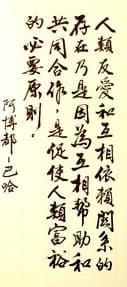 人類友愛和互相依賴關系的
存在乃是因為互相幫助和
共同合作，是促使人類富裕
的必要原則。
阿博都－巴哈